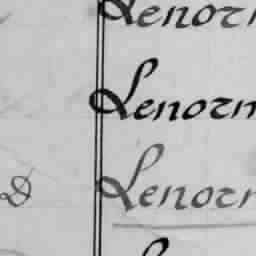 Lenorm
Lenorm
D Lenorm